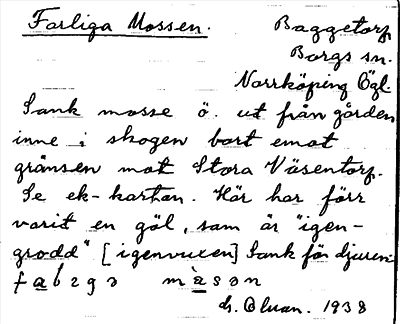 Farliga Mossen. Baggetorp
Borgs sn.
Norrköping Ögl.
Sank mosse ö. ut från gården
inne i skogen bort emot
gränsen mot Stora Väsentorp.
Se ek-kartan. Här har förr
varit en göl, som är "igen-
grodd" [igenvuxen] Sank för djuren